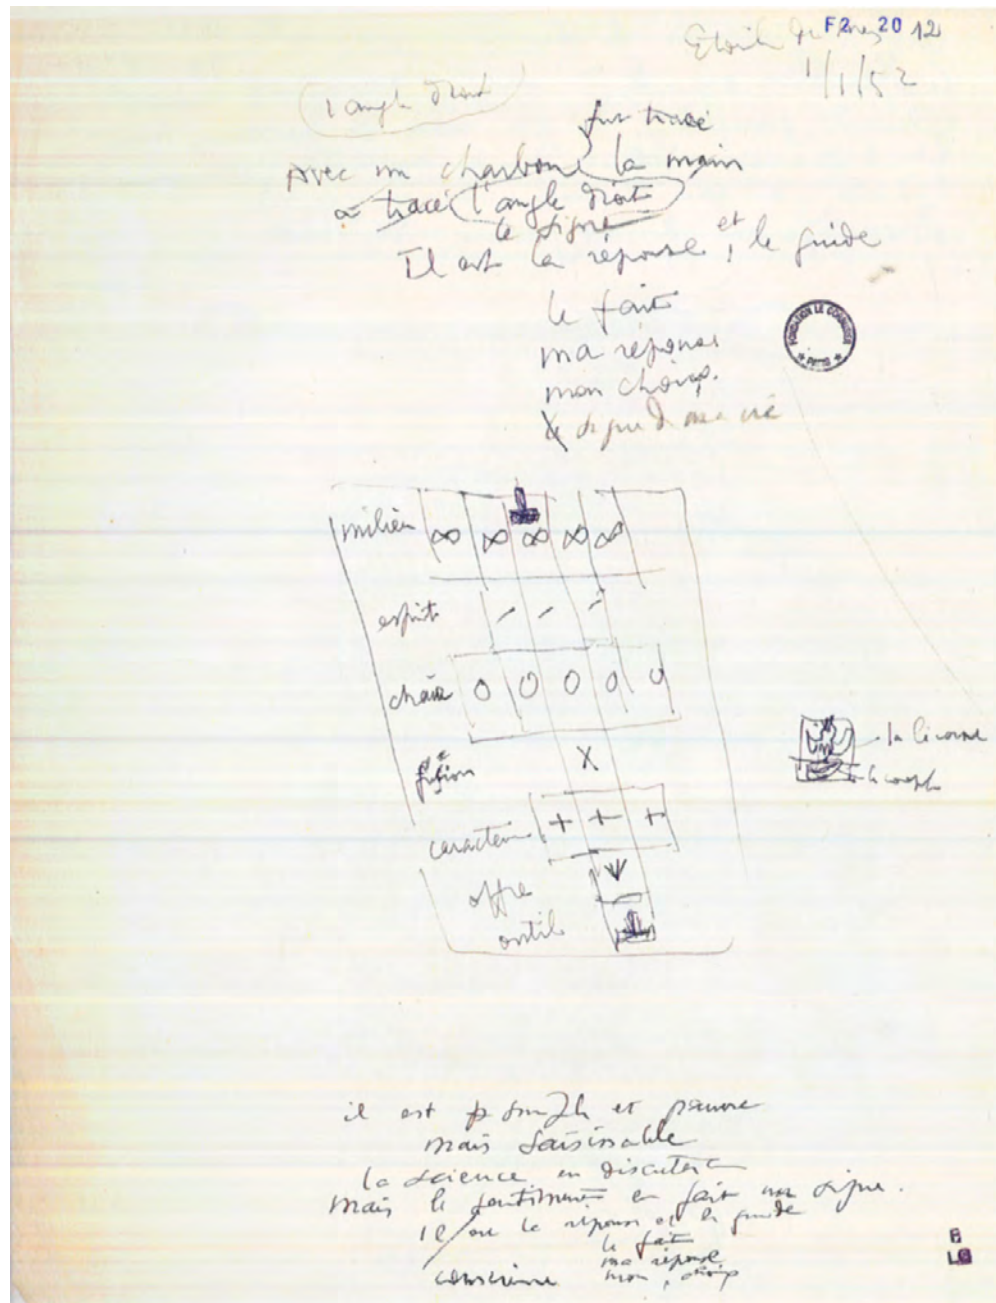 Etoile de Mer F2 20 12
1/1/52
l'angle droit
fut tracé
Avec un charbon la main
a tracé l'angle droit
le signe
Il est la réponse et le guide
le fait
ma réponse
mon choix.
le signe de ma vie
FONDATION LE CORBUSIER
PARIS
milieu ∞ ∞ ∞ ∞ ∞
esprit
chair O O O O O
fusion X
la licorne
le couple
caractère + + +
offre
outil
il est simple et pauvre
mais saisissable
la science en discutera
mais le sentiment en fait un signe.
il est la réponse et le guide
le fait
ma réponse
conscience mon choix